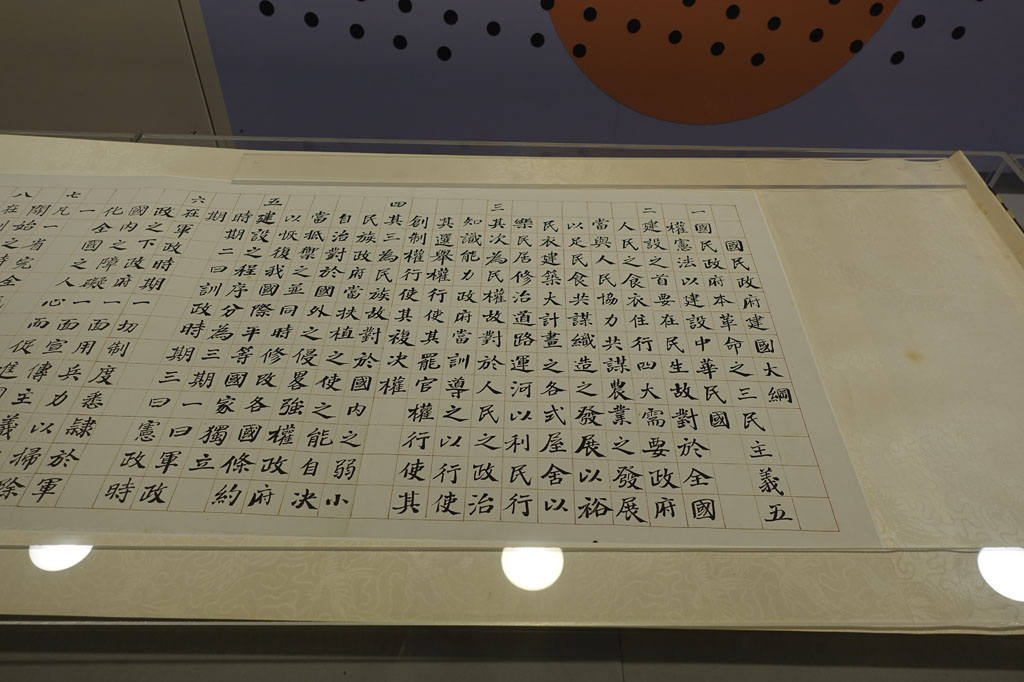 國民政府建國大綱
一 國民政府本革命之三民主義五
權憲法以建設中華民國
二 建設之首要在民生故對於全國
人民之食衣住行四大需要政府
當與人民協力共謀農業之發展
以足民食共謀織造之發展以裕
民衣建築大計畫之各式屋舍以
樂民居修治道路運河以利民行
三 其次為民權故對於人民之政治
知識能力政府當訓導之以行使
其選舉權行使其罷官權行使其
創制權行使其複決權
四 其三為民族故對於國內之弱小
民族政府當扶植之使之能自決
自治對於國外之侵畧強權政府
當抵禦之並同時修改各國條約
以恢復我國際平等國家獨立
五 建設之程序分為三期一曰軍政
時期二曰訓政時期三曰憲政時
期
六 在軍政時期一切制度悉隸於軍
政之下政府一面用兵力以掃除
國內之障礙一面宣傳主義
化全國之人心而促進
一
七 凡一省完全
開始之
八 在